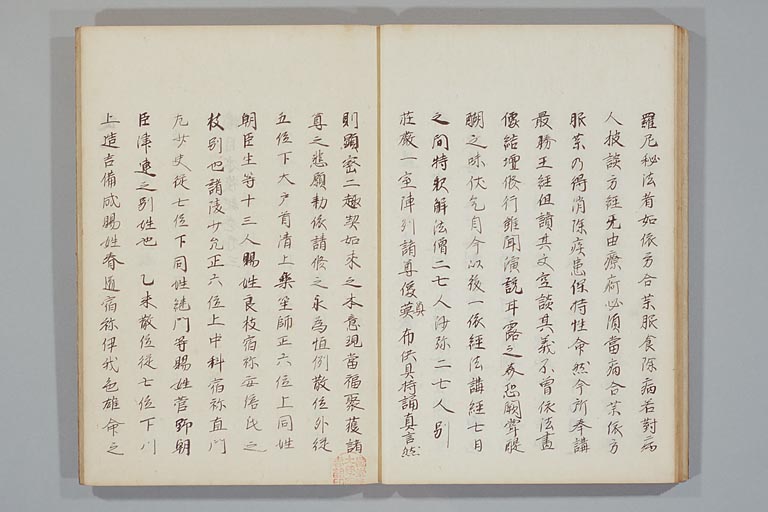 羅尼秘法者如依方合茶服食除病若對病
人披談方經无由療痾必須當病合茶依方
服茶乃得消除疾患保特性命然今所奉講
最勝王經但讀其文空談其義不曾依法畫
像結壇修行雖聞演説耳露之義恐闕甞醍
醐之味伏乞自今以後一依經法講經七日
之間特択解法僧二七人沙弥二七人別
莊嚴一室陣列諸尊像奠布供具持誦真言然
則顕密二趣契如来之本意現當福聚獲諸
尊之悲願勅依請修之永為恒例散位外従
五位下大戸首清上楽笙師正六位上同姓
朝臣生等十三人賜姓良枝宿祢安倍氏之
枝別也諸陵少允正六位上中科宿祢直門
凡少史従七位下同姓継門等賜姓菅野朝
臣津連之別姓也 乙未散位従七位下川
上造吉備成賜姓春道宿祢伊我色雄命之